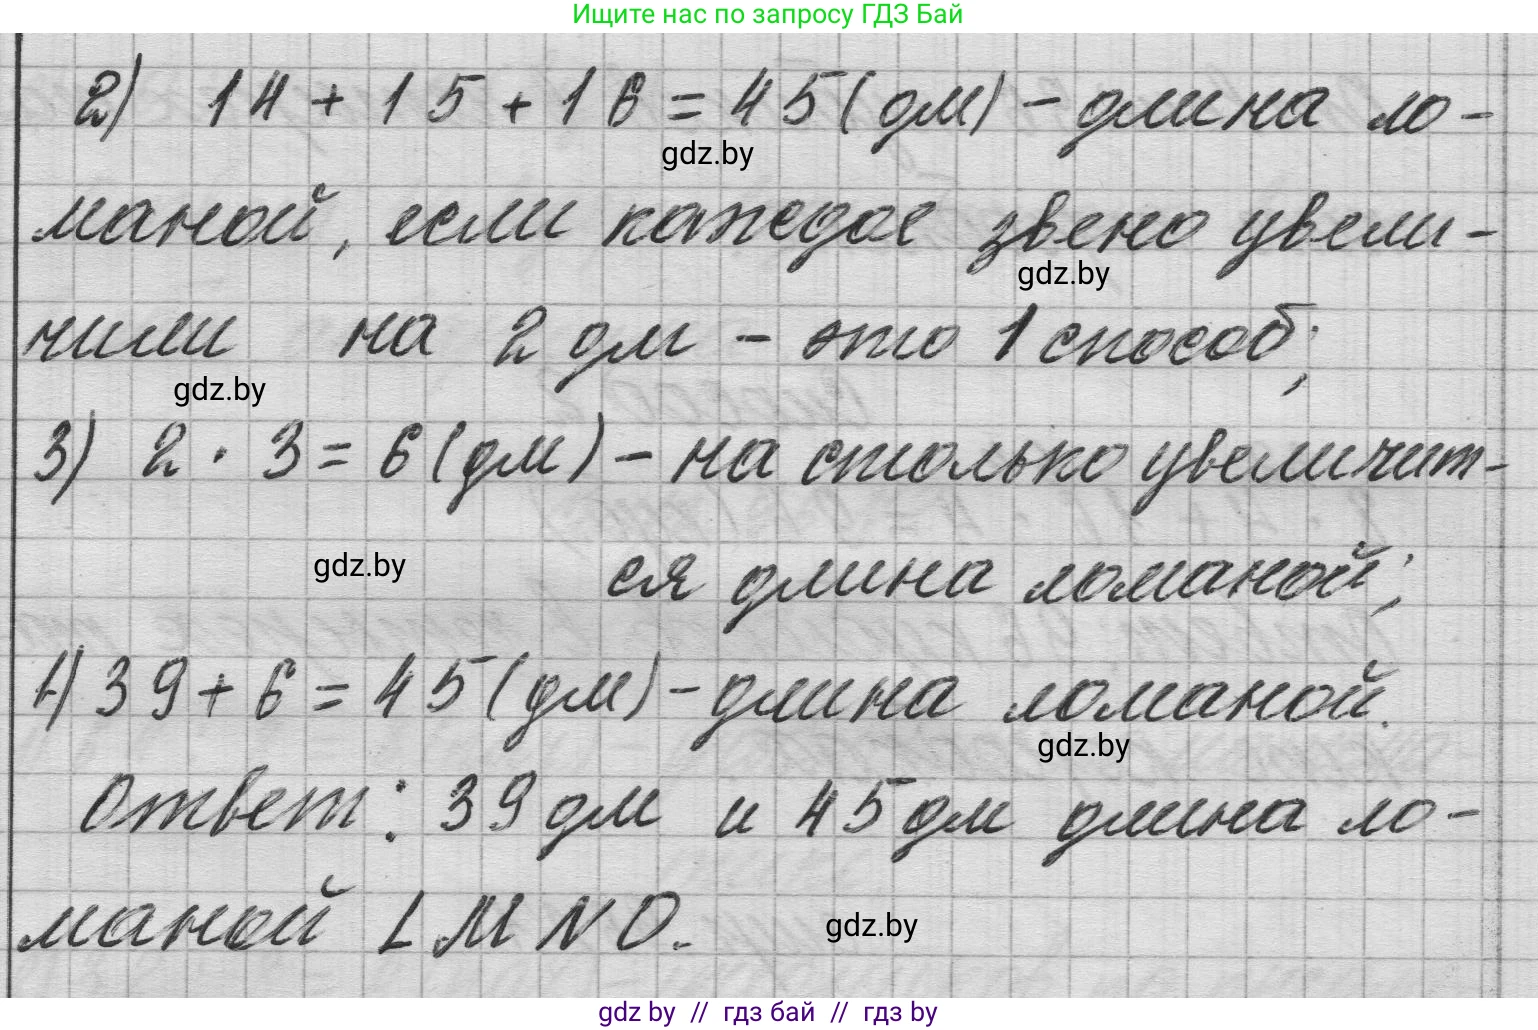 Ищите нас по запросу ГДЗ Бай
2) 14 + 15 + 16 = 45 (дм) - длина ло-
gdz.by
маной, если каждое звено увели-
gdz.by
чили на 2 дм - это 1 способ;
gdz.by
3) 2 · 3 = 6 (дм) - на столько увеличит-
gdz.by
ся длина ломаной;
4) 39 + 6 = 45 (дм) - длина ломаной.
gdz.by
Ответ: 39 дм и 45 дм длина ло-
маной LMNO.
gdz.by
gdz by // гдз бай // гдз by